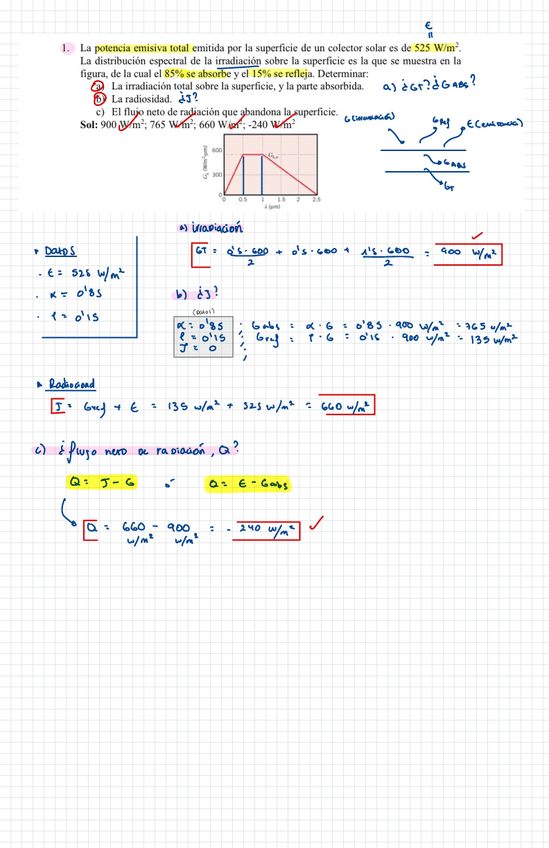 E
=
1. La potencia emisiva total emitida por la superficie de un colector solar es de 525 W/m².
La distribución espectral de la irradiación sobre la superficie es la que se muestra en la
figura, de la cual el 85% se absorbe y el 15% se refleja. Determinar:
a) La irradiación total sobre la superficie, y la parte absorbida.
a) ¿GT? ¿GABS?
b) La radiosidad. ¿J?
c) El flujo neto de radiación que abandona la superficie.
Sol: 900 W/m²; 765 W/m²; 660 W/m²; -240 W/m²
G(irradiación)
Gref
E(emitancia)
GABS
GT
Gλ (W/m²μm)
600
300
0
Gλ,s
0 0.5 1 1.5 2 2.5
λ (μm)
a) irradiación
GT = 0'5 · 600 / 2 + 0's · 600 + 1's · 600 / 2 = 900 W/m²
Datos
· E = 525 W/m²
· α = 0'85
· ρ = 0'15
b) ¿J?
(Datos)
α = 0'85 ; Gabs = α · G = 0'85 · 900 W/m² = 765 W/m²
ρ = 0'15 ; Gref = ρ · G = 0'15 · 900 W/m² = 135 W/m²
J = 0 ;
Radiosidad
J = Gref + E = 135 W/m² + 525 W/m² = 660 W/m²
c) ¿flujo neto de radiación, Q?
Q = J - G o' Q = E - Gabs
Q = 660 - 900 = - 240 W/m²
W/m² W/m²